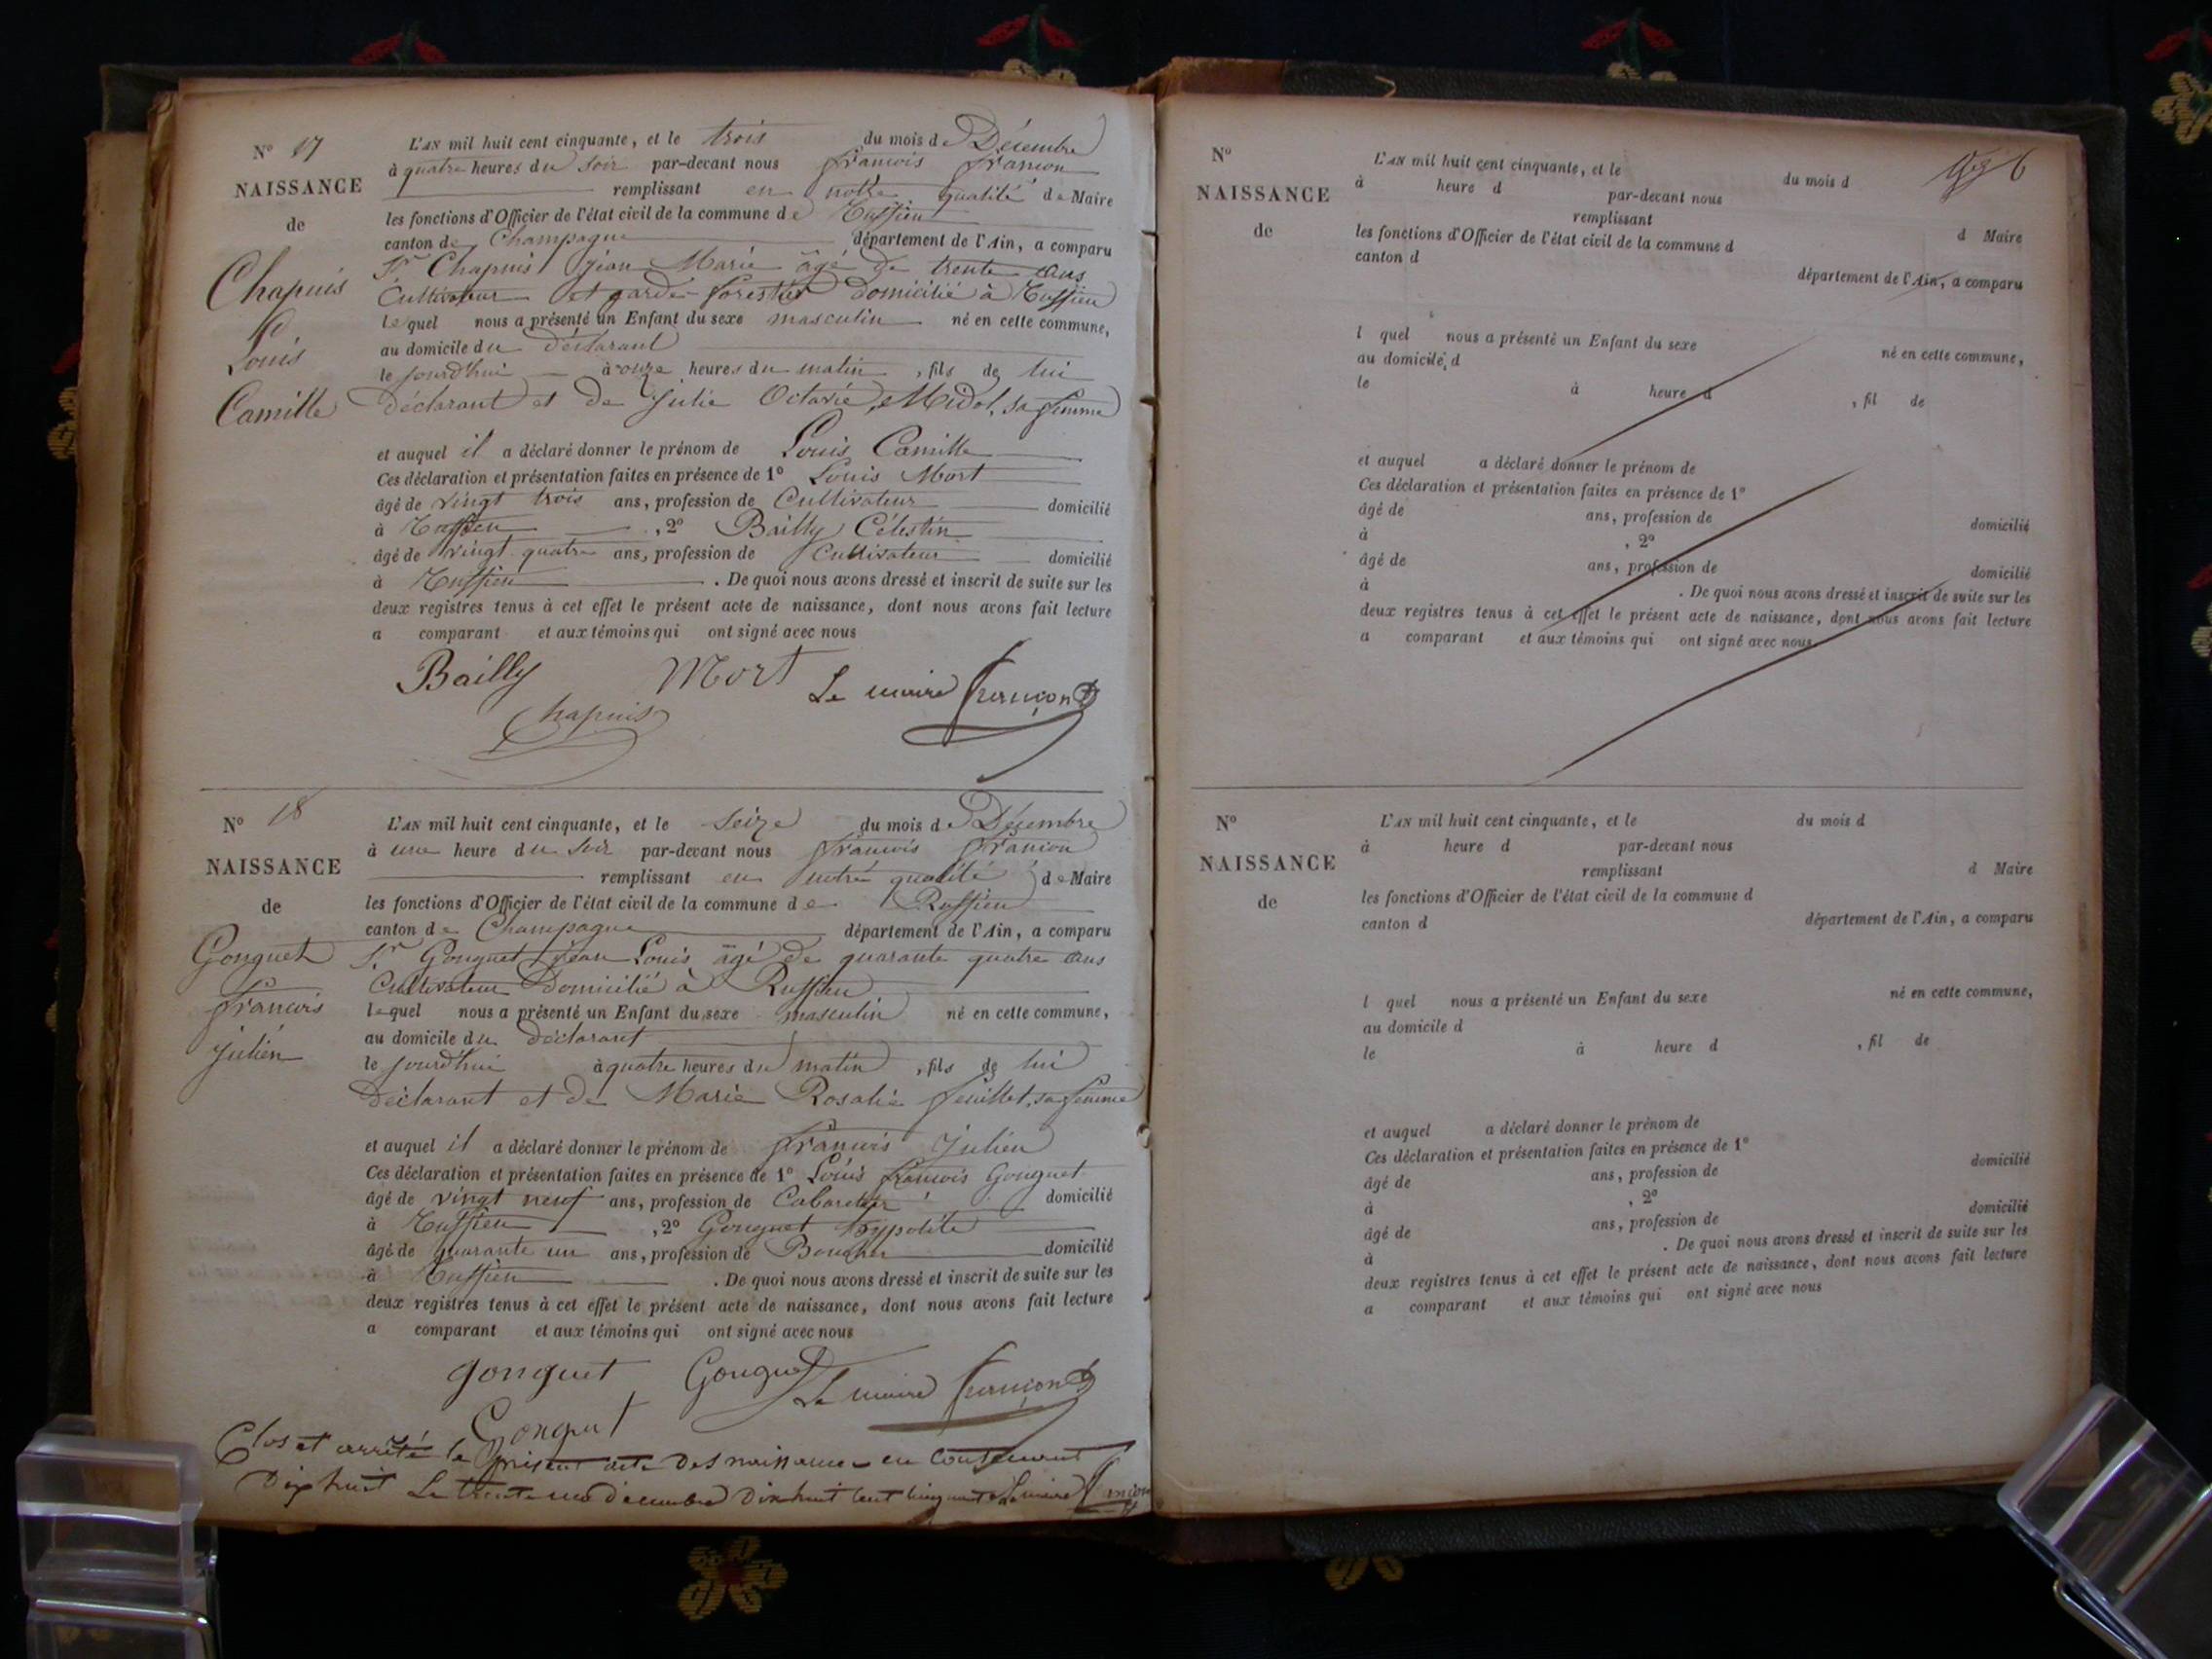 N° 17
NAISSANCE
de
Chapuis
Louis
Camille
L'AN mil huit cent cinquante, et le trois du mois de Décembre
à quatre heures du soir par-devant nous françois françon
remplissant en notre qualité de Maire
les fonctions d'Officier de l'état civil de la commune de Ruffieu
canton de Champagne département de l'Ain, a comparu
Sr Chapuis Jean Marie âgé de trente ans
Cultivateur et garde-forestier domicilié à Ruffieu
lequel nous a présenté un Enfant du sexe masculin né en cette commune,
au domicile du déclarant
le jourd'hui à onze heures du matin, fils de lui
déclarant et de Julie Octavie Midol, sa femme
et auquel il a déclaré donner le prénom de Louis Camille
Ces déclaration et présentation faites en présence de 1° Louis Mort
âgé de vingt trois ans, profession de Cultivateur domicilié
à Ruffieu, 2° Bailly Célestin
âgé de vingt quatre ans, profession de Cultivateur domicilié
à Ruffieu. De quoi nous avons dressé et inscrit de suite sur les
deux registres tenus à cet effet le présent acte de naissance, dont nous avons fait lecture
a comparant et aux témoins qui ont signé avec nous
Bailly Mort Le maire françon
Chapuis
N° 18
NAISSANCE
de
Gonguet
françois
Julien
L'AN mil huit cent cinquante, et le seize du mois de Décembre
à une heure du soir par-devant nous françois françon
remplissant en notre qualité de Maire
les fonctions d'Officier de l'état civil de la commune de Ruffieu
canton de Champagne département de l'Ain, a comparu
Sr Gonguet Jean Louis âgé de quarante quatre ans
Cultivateur domicilié à Ruffieu
lequel nous a présenté un Enfant du sexe masculin né en cette commune,
au domicile du déclarant
le jourd'hui à quatre heures du matin, fils de lui
déclarant et de Marie Rosalie feuillet, sa femme
et auquel il a déclaré donner le prénom de françois Julien
Ces déclaration et présentation faites en présence de 1° Louis françois Gonguet
âgé de vingt neuf ans, profession de Cabaretier domicilié
à Ruffieu, 2° Gonguet hypolite
âgé de quarante un ans, profession de Boucher domicilié
à Ruffieu. De quoi nous avons dressé et inscrit de suite sur les
deux registres tenus à cet effet le présent acte de naissance, dont nous avons fait lecture
a comparant et aux témoins qui ont signé avec nous
gonguet Gonguet Le maire françon
Gonguet
Clos et arrêté le présent acte des naissances en contenant
Dix huit Le trente un décembre Dix huit cent cinquante Le maire françon
N°
NAISSANCE
de
L'AN mil huit cent cinquante, et le du mois d
à heure d par-devant nous
remplissant d Maire
les fonctions d'Officier de l'état civil de la commune d
canton d département de l'Ain, a comparu
l quel nous a présenté un Enfant du sexe né en cette commune,
au domicile d
le à heure d , fil de
et auquel a déclaré donner le prénom de
Ces déclaration et présentation faites en présence de 1°
âgé de ans, profession de domicilié
à , 2°
âgé de ans, profession de domicilié
à . De quoi nous avons dressé et inscrit de suite sur les
deux registres tenus à cet effet le présent acte de naissance, dont nous avons fait lecture
a comparant et aux témoins qui ont signé avec nous
N°
NAISSANCE
de
L'AN mil huit cent cinquante, et le du mois d
à heure d par-devant nous
remplissant d Maire
les fonctions d'Officier de l'état civil de la commune d
canton d département de l'Ain, a comparu
l quel nous a présenté un Enfant du sexe né en cette commune,
au domicile d
le à heure d , fil de
et auquel a déclaré donner le prénom de
Ces déclaration et présentation faites en présence de 1°
âgé de ans, profession de domicilié
à , 2°
âgé de ans, profession de domicilié
à . De quoi nous avons dressé et inscrit de suite sur les
deux registres tenus à cet effet le présent acte de naissance, dont nous avons fait lecture
a comparant et aux témoins qui ont signé avec nous